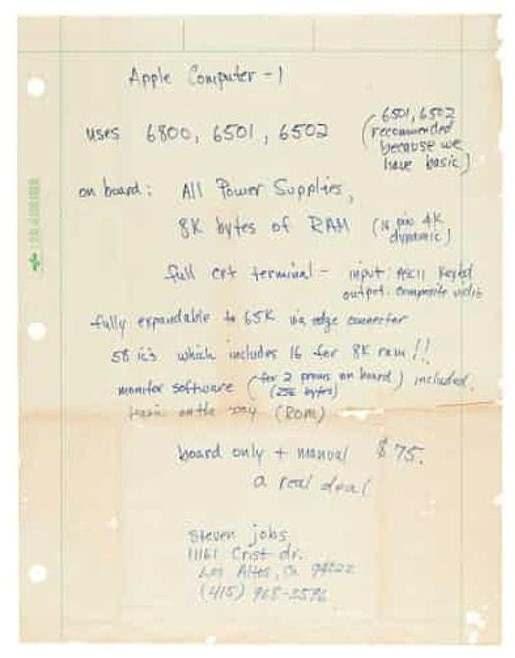 Apple Computer - 1
uses 6800, 6501, 6502
(6501, 6502
recommended
because we
have basic)
on board: All Power Supplies,
8K bytes of RAM (16 pin 4K
dynamic)
full crt terminal - input: ASCII Keybd
output: composite video
fully expandable to 65K via edge connector
58 ic's which includes 16 for 8K ram!!
monitor software (for 2 proms on board) included.
(256 bytes)
basic on the way (ROM)
board only + manual $75.
a real deal
Steven jobs
11161 Crist dr.
Los Altos, Ca
(415) 968-